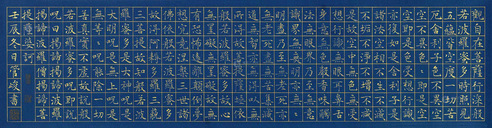 觀自在菩薩行深般
若波羅蜜多時照見
五蘊皆空度一切苦
厄舍利子色不異空
空不異色色即是空
空即是色受想行識
亦復如是舍利子是
諸法空相不生不滅
不垢不淨不增不減
是故空中無色無受
想行識無眼耳鼻舌
身意無色聲香味觸
法無眼界乃至無意
識界無無明亦無無
明盡乃至無老死亦
無老死盡無苦集滅
道無智亦無得以無
所得故菩提薩埵依
般若波羅蜜多故心
無罣礙無罣礙故無
有恐怖遠離顛倒夢
想究竟涅槃三世諸
佛依般若波羅蜜多
故得阿耨多羅三藐
三菩提故知般若波
羅蜜多是大神呪是
大明呪是無上呪是
無等等呪能除一切
苦真實不虛故說般
若波羅蜜多呪即說
呪曰揭諦揭諦波羅
揭諦波羅僧揭諦菩
提薩婆訶
壬辰冬日管峻書